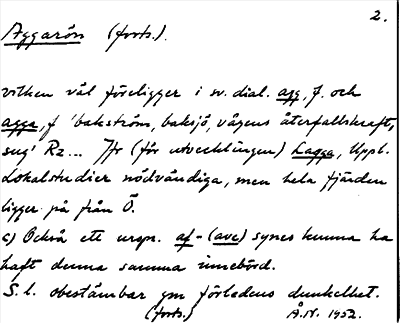 2.
Aggarön (forts.).
vilken väl föreligger i sv. dial. agg, f. och
agga, f 'bakström, baksjö, vågens återfallskraft,
sug' Rz... Jfr (för utvecklingen) Lagga, Uppl.
Lokalstudier nödvändiga, men hela fjärden
ligger på från Ö.
c) Också ett urspr. af- (ave) synes kunna ha
haft denna samma innebörd.
S. l. obestämbar gm förledens dunkelhet.
(forts.) Å.N. 1952.